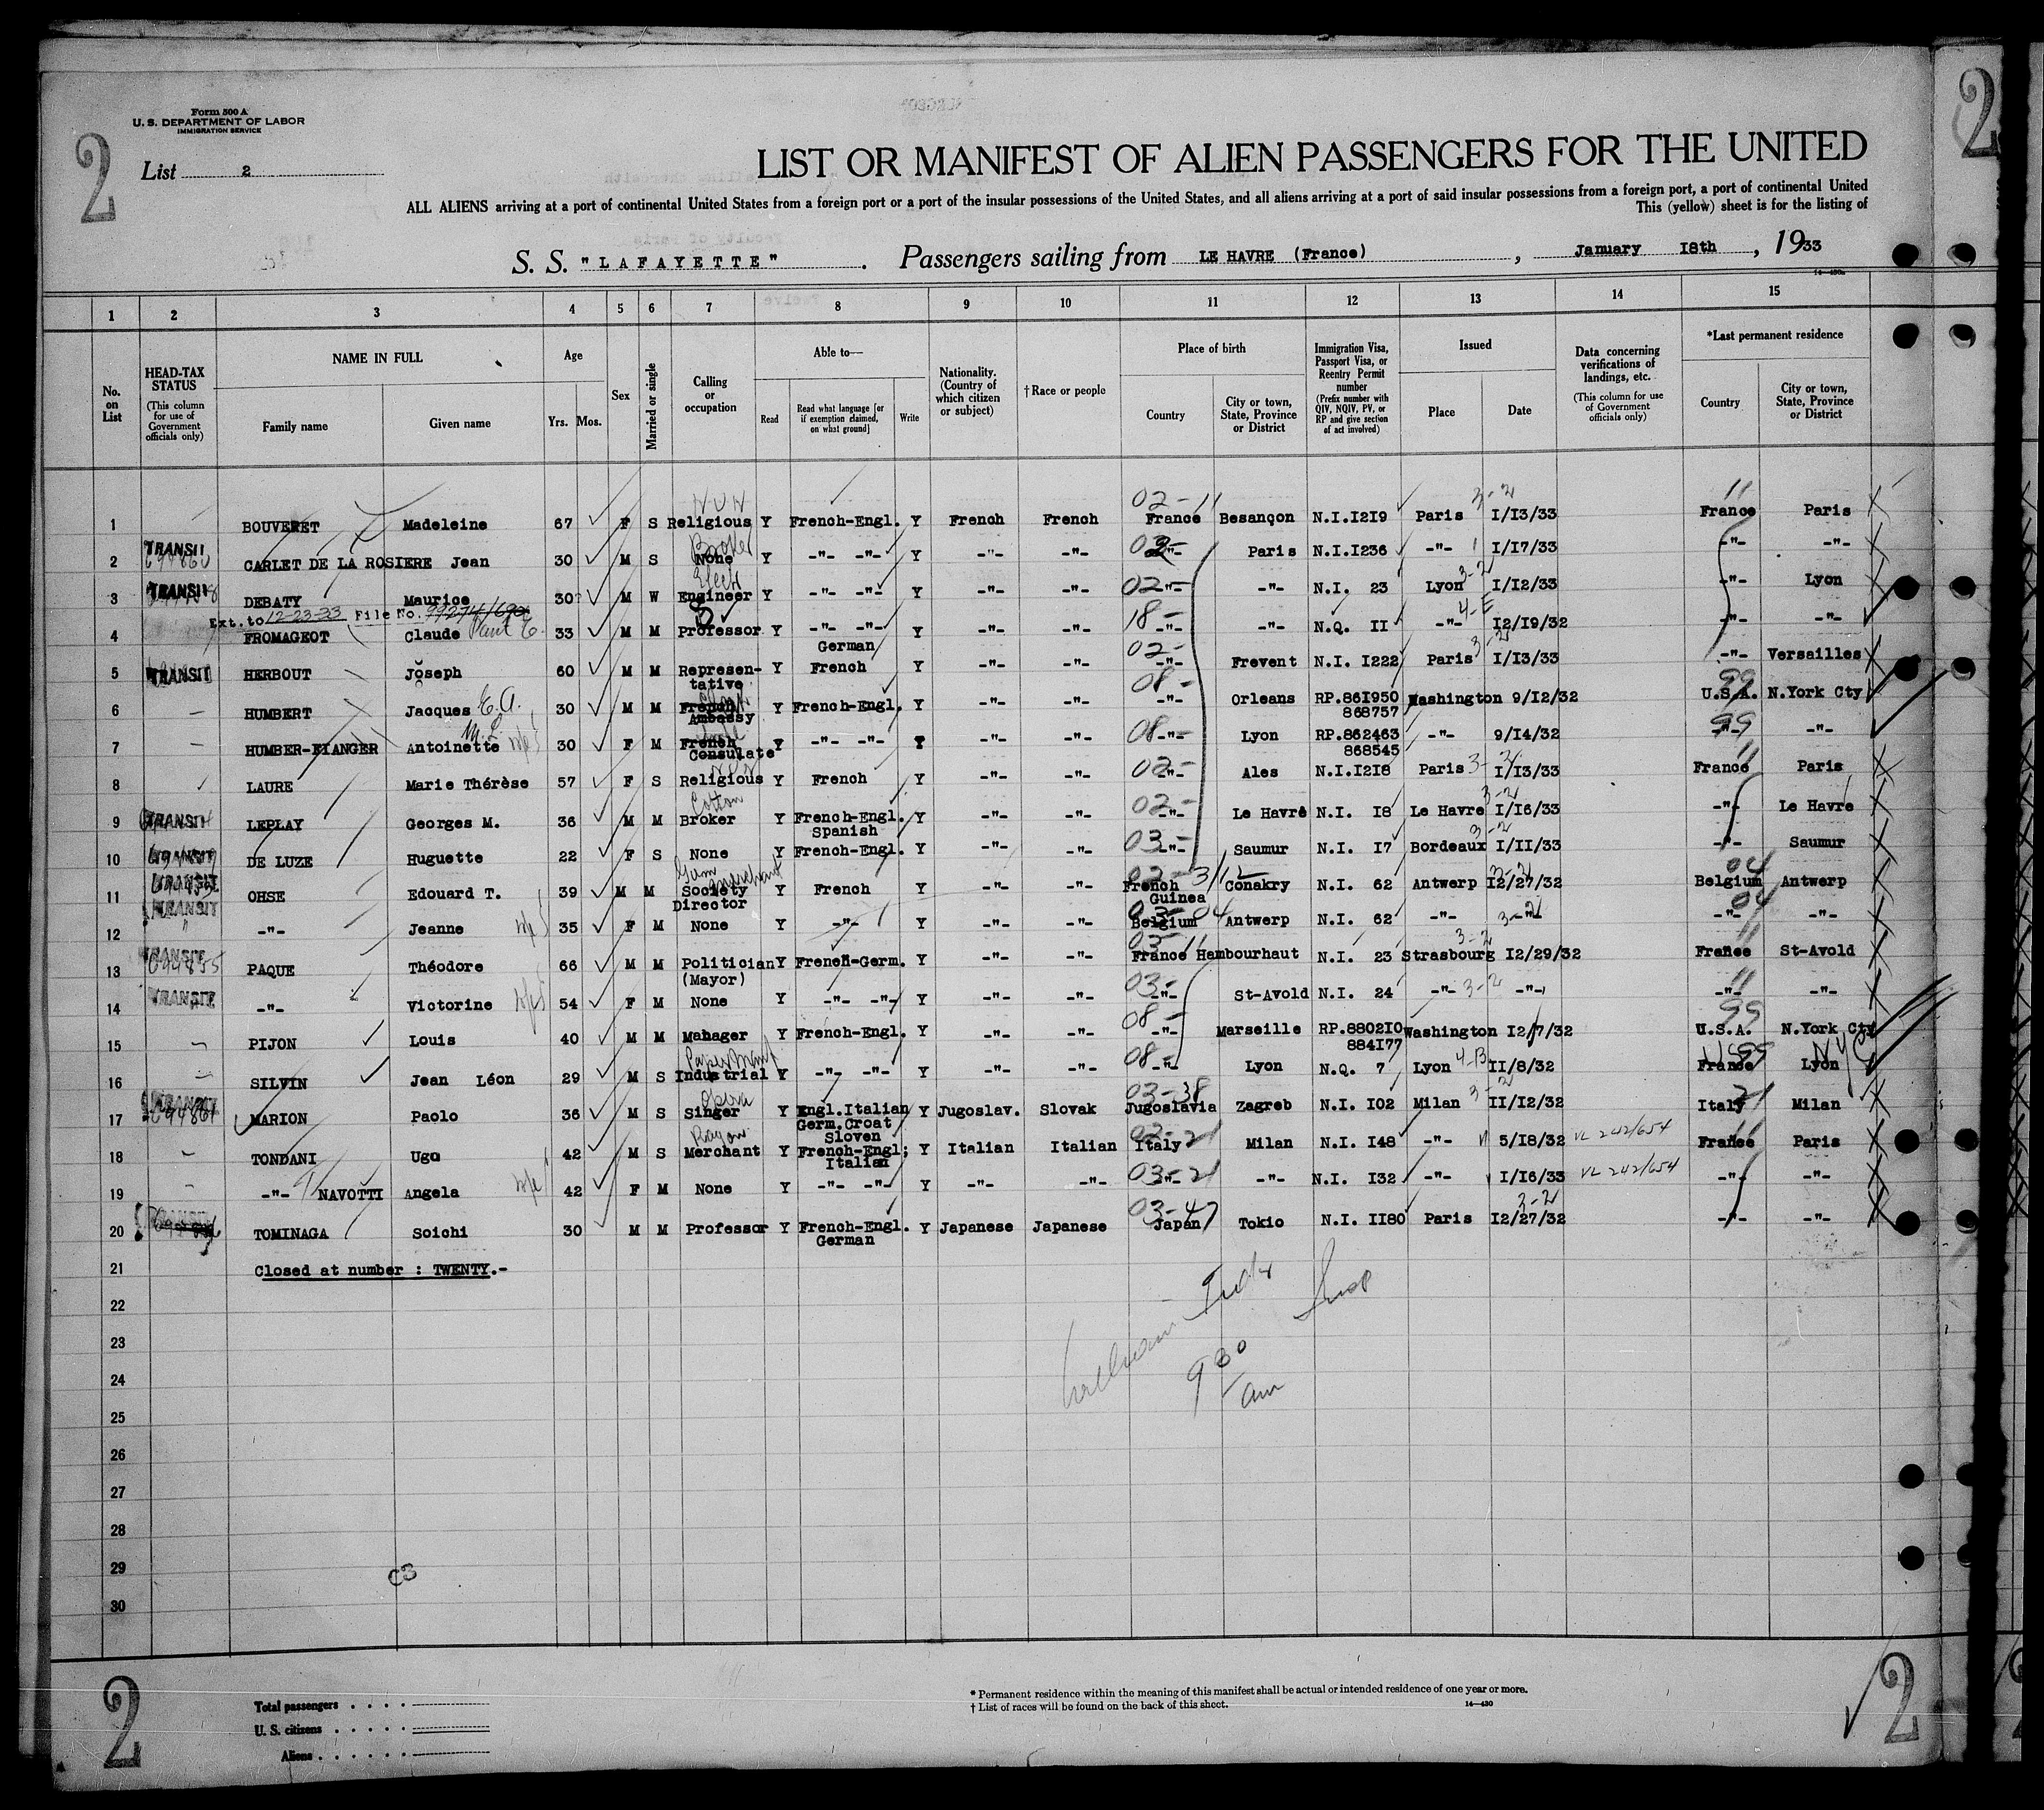 Form 500 A
U. S. DEPARTMENT OF LABOR
IMMIGRATION SERVICE
2
2
List 2
LIST OR MANIFEST OF ALIEN PASSENGERS FOR THE UNITED
ALL ALIENS arriving at a port of continental United States from a foreign port or a port of the insular possessions of the United States, and all aliens arriving at a port of said insular possessions from a foreign port, a port of continental United
This (yellow) sheet is for the listing of
S. S. "LAFAYETTE". Passengers sailing from LE HAVRE (France), January 18th, 1933
14—430a
1 2 3 4 5 6 7 8 9 10 11 12 13 14 15
No. on List
HEAD-TAX STATUS (This column for use of Government officials only)
NAME IN FULL Family name Given name
Age Yrs. Mos.
Sex
Married or single
Calling or occupation
Able to— Read Read what language [or if exemption claimed, on what ground] Write
Nationality. (Country of which citizen or subject)
†Race or people
Place of birth Country City or town, State, Province or District
Immigration Visa, Passport Visa, or Reentry Permit number (Prefix number with QIV, NQIV, PV, or RP and give section of act involved)
Issued Place Date
Data concerning verifications of landings, etc. (This column for use of Government officials only)
*Last permanent residence Country City or town, State, Province or District
1 BOUVERET Madeleine 67 F S Religious Y French-Engl. Y French French 02-11 France Besançon N.I.I2I9 Paris 3-2 I/I3/33 11 France Paris
2 TRANSIT CARLET DE LA ROSIERE Jean 30 M S Broker None Y -"- -"- Y -"- -"- -"- Paris N.I.I236 -"- I/I7/33 -"- -"-
3 TRANSIT DEBATY Maurice 30 M W Elect Engineer Y -"- -"- Y -"- -"- 02- -"- -"- N.I. 23 Lyon 3-2 I/I2/33 -"- Lyon
Ext. to 12-23-33 File No. 99274/690
4 FROMAGEOT Claude Paul E. 33 M M Professor Y -"- -"- German Y -"- -"- 18- -"- -"- N.Q. II -"- 4-E I2/19/32 -"- -"-
5 TRANSIT HERBOUT Joseph 60 M M Representative Y French Y -"- -"- 02- -"- Frevent N.I. I222 Paris 3-2 I/I3/33 -"- Versailles
6 HUMBERT Jacques E.A. 30 M M French Ambassy Y French-Engl. Y -"- -"- 08- -"- Orleans RP.86I950 868757 Washington 9/I2/32 99 U.S.A. N.York Cty
7 HUMBER-FIANGER Antoinette M.L. 30 F M French Consulate Y -"- -"- Y -"- -"- 08- -"- Lyon RP.862463 868545 -"- 9/I4/32 99 -"- -"-
8 LAURE Marie Thérèse 57 F S Religious Y French Y -"- -"- 02- -"- Ales N.I.I2I8 Paris 3-2 I/I3/33 11 France Paris
9 TRANSIT LEPLAY Georges M. 36 M M Cotton Broker Y French-Engl. Spanish Y -"- -"- 02- -"- Le Havre N.I. I8 Le Havre 3-2 I/I6/33 -"- Le Havre
10 TRANSIT DE LUZE Huguette 22 F S None Y French-Engl. Y -"- -"- 03- -"- Saumur N.I. I7 Bordeaux 3-2 I/II/33 -"- Saumur
11 TRANSIT OHSE Edouard T. 39 M M Gum merchant Society Director Y French Y -"- -"- 02- French Guinea Conakry N.I. 62 Antwerp 3-2 I2/27/32 04 Belgium Antwerp
12 TRANSIT -"- Jeanne 35 F M None Y -"- Y -"- -"- 03-04 Belgium Antwerp N.I. 62 -"- 3-2 -"- 04 -"- -"-
13 TRANSIT 694855 PAQUE Théodore 66 M M Politician (Mayor) Y French-Germ. Y -"- -"- 03-11 France Hambourhaut N.I. 23 Strasbourg 3-2 I2/29/32 11 France St-Avold
14 TRANSIT -"- Victorine 54 F M None Y -"- -"- Y -"- -"- 03- -"- St-Avold N.I. 24 -"- 3-2 -"- 11 -"- -"-
15 PIJON Louis 40 M M Manager Y French-Engl. Y -"- -"- 08- -"- Marseille RP.8802I0 884I77 Washington I2/7/32 99 U.S.A. N.York Cty
16 SILVIN Jean Léon 29 M S Industrial Y -"- -"- Y -"- -"- 08- -"- Lyon N.Q. 7 Lyon 4-B II/8/32 France Lyon
17 TRANSIT 694861 MARION Paolo 36 M S Opera Singer Y Engl.Italian Germ.Croat Sloven Y Jugoslav. Slovak 03-38 Jugoslavia Zagreb N.I. I02 Milan 3-2 II/I2/32 21 Italy Milan
18 TONDANI Ugo 42 M S Rayon Merchant Y French-Engl; Italian Y Italian Italian 02-21 Italy Milan N.I. I48 -"- 5/I8/32 VL 242/654 11 France Paris
19 -"- NAVOTTI Angela 42 F M None Y -"- -"- Y -"- -"- 03-21 -"- -"- N.I. I32 -"- I/I6/33 VL 242/654 -"- -"-
20 TOMINAGA Soichi 30 M M Professor Y French-Engl. German Y Japanese Japanese 03-47 Japan Tokio N.I. II80 Paris 3-2 I2/27/32 -"- -"-
21 Closed at number : TWENTY.-
22
23
24
9 30 am
25
26
27
28
29
30
2
Total passengers
U. S. citizens
Aliens
* Permanent residence within the meaning of this manifest shall be actual or intended residence of one year or more.
† List of races will be found on the back of this sheet. 14—430
2